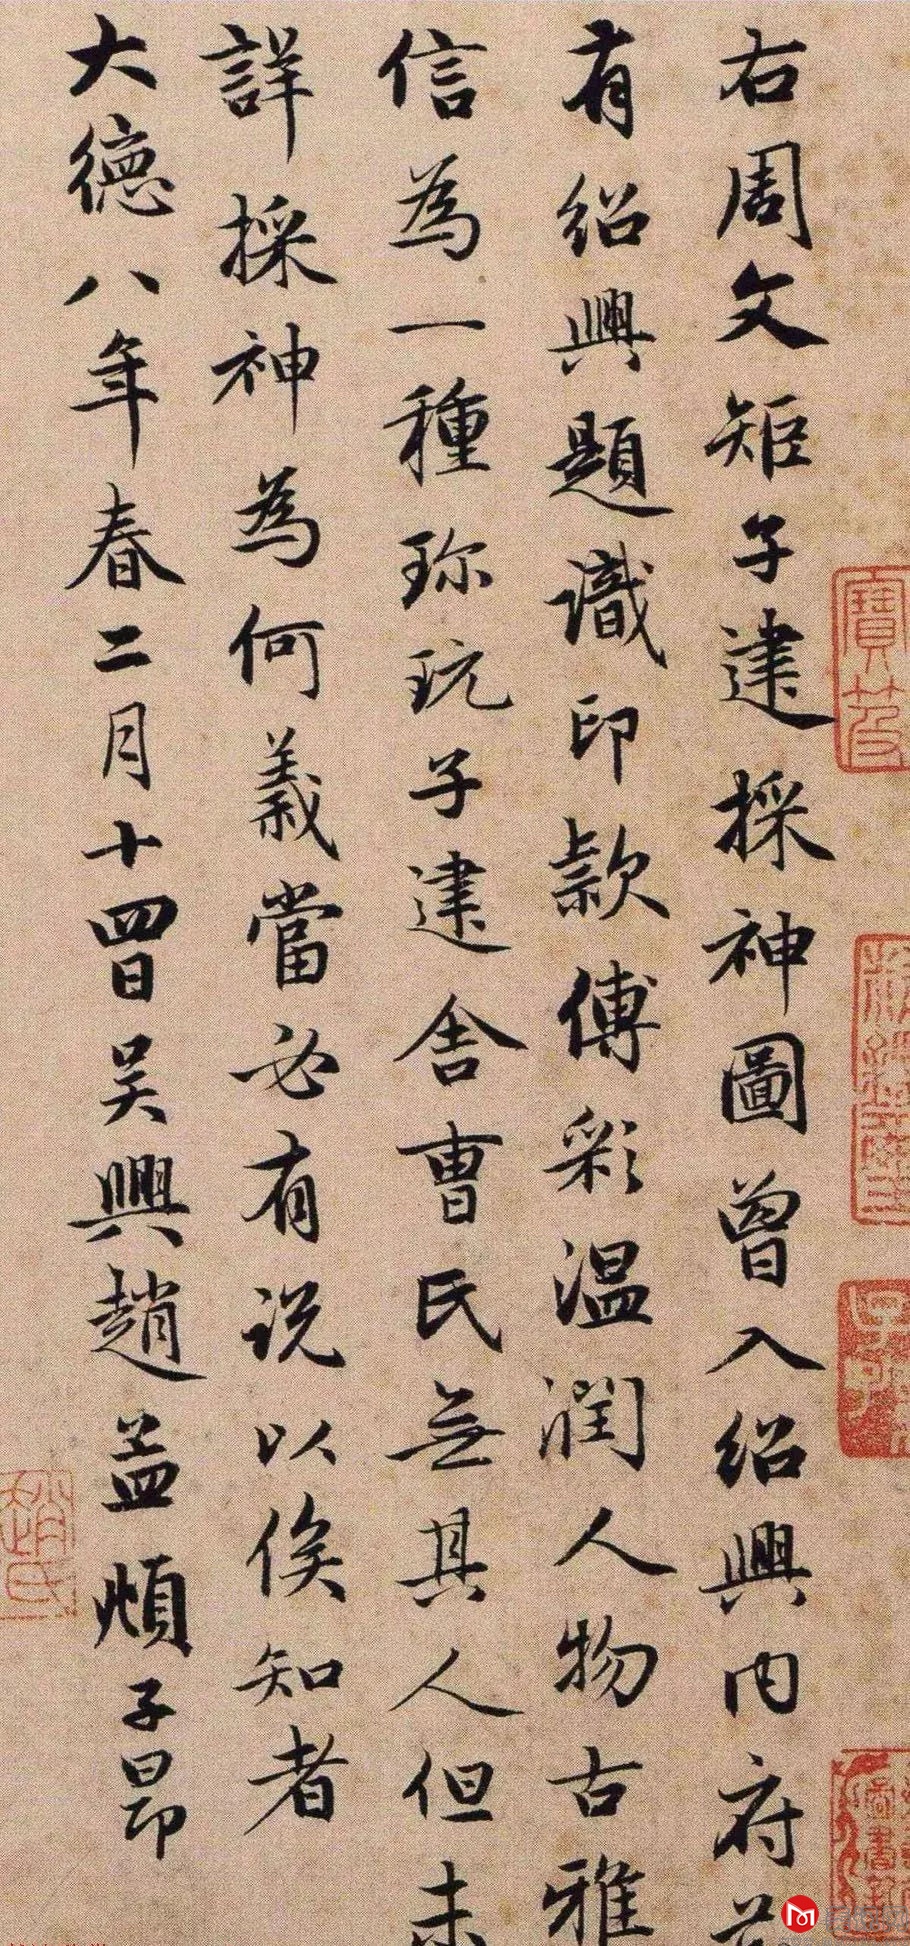 右周文矩子建採神圖曾入紹興内府
有紹興題識印款傅彩温潤人物古雅
信為一種珎玩子建舎曹氏無其人但未
詳採神為何義當必有説以俟知者
大德八年春二月十四日吴興趙孟頫子昂
趙氏